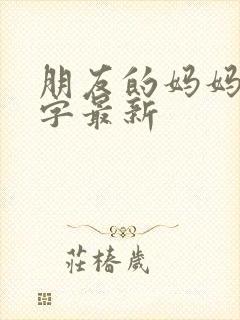 朋友的妈妈
字最新
莊椿歲